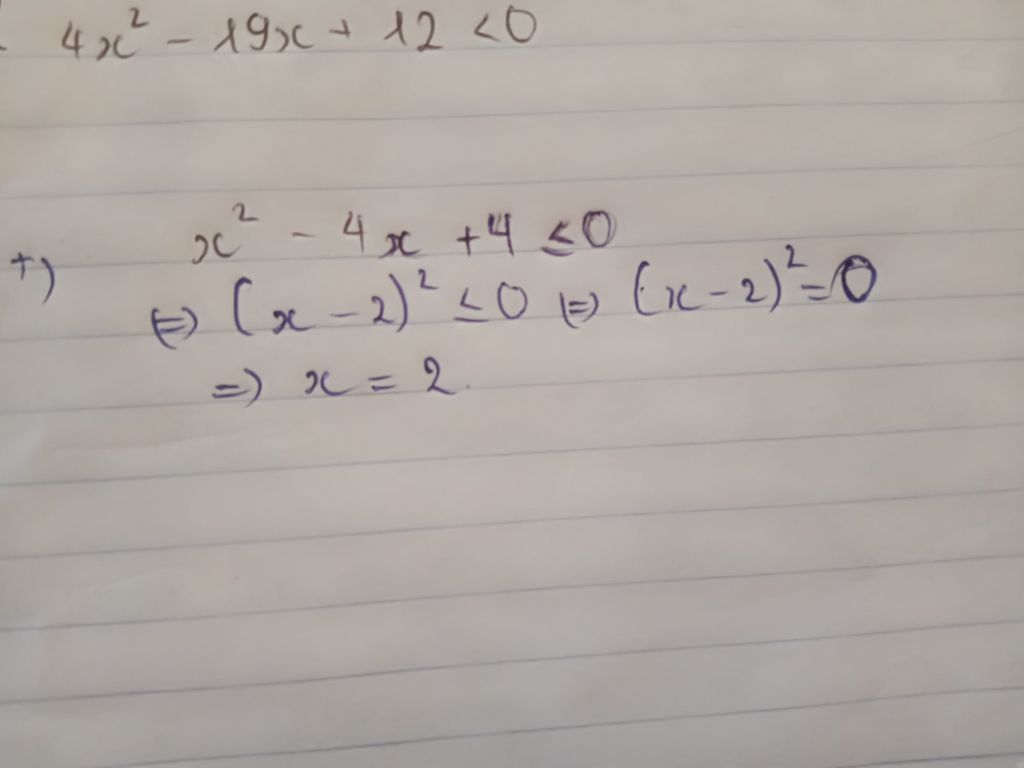 4x² - 19x + 12 < 0
+) x² - 4x + 4 ≤ 0
⇔ (x - 2)² ≤ 0 ⇔ (x - 2)² = 0
⇒ x = 2.